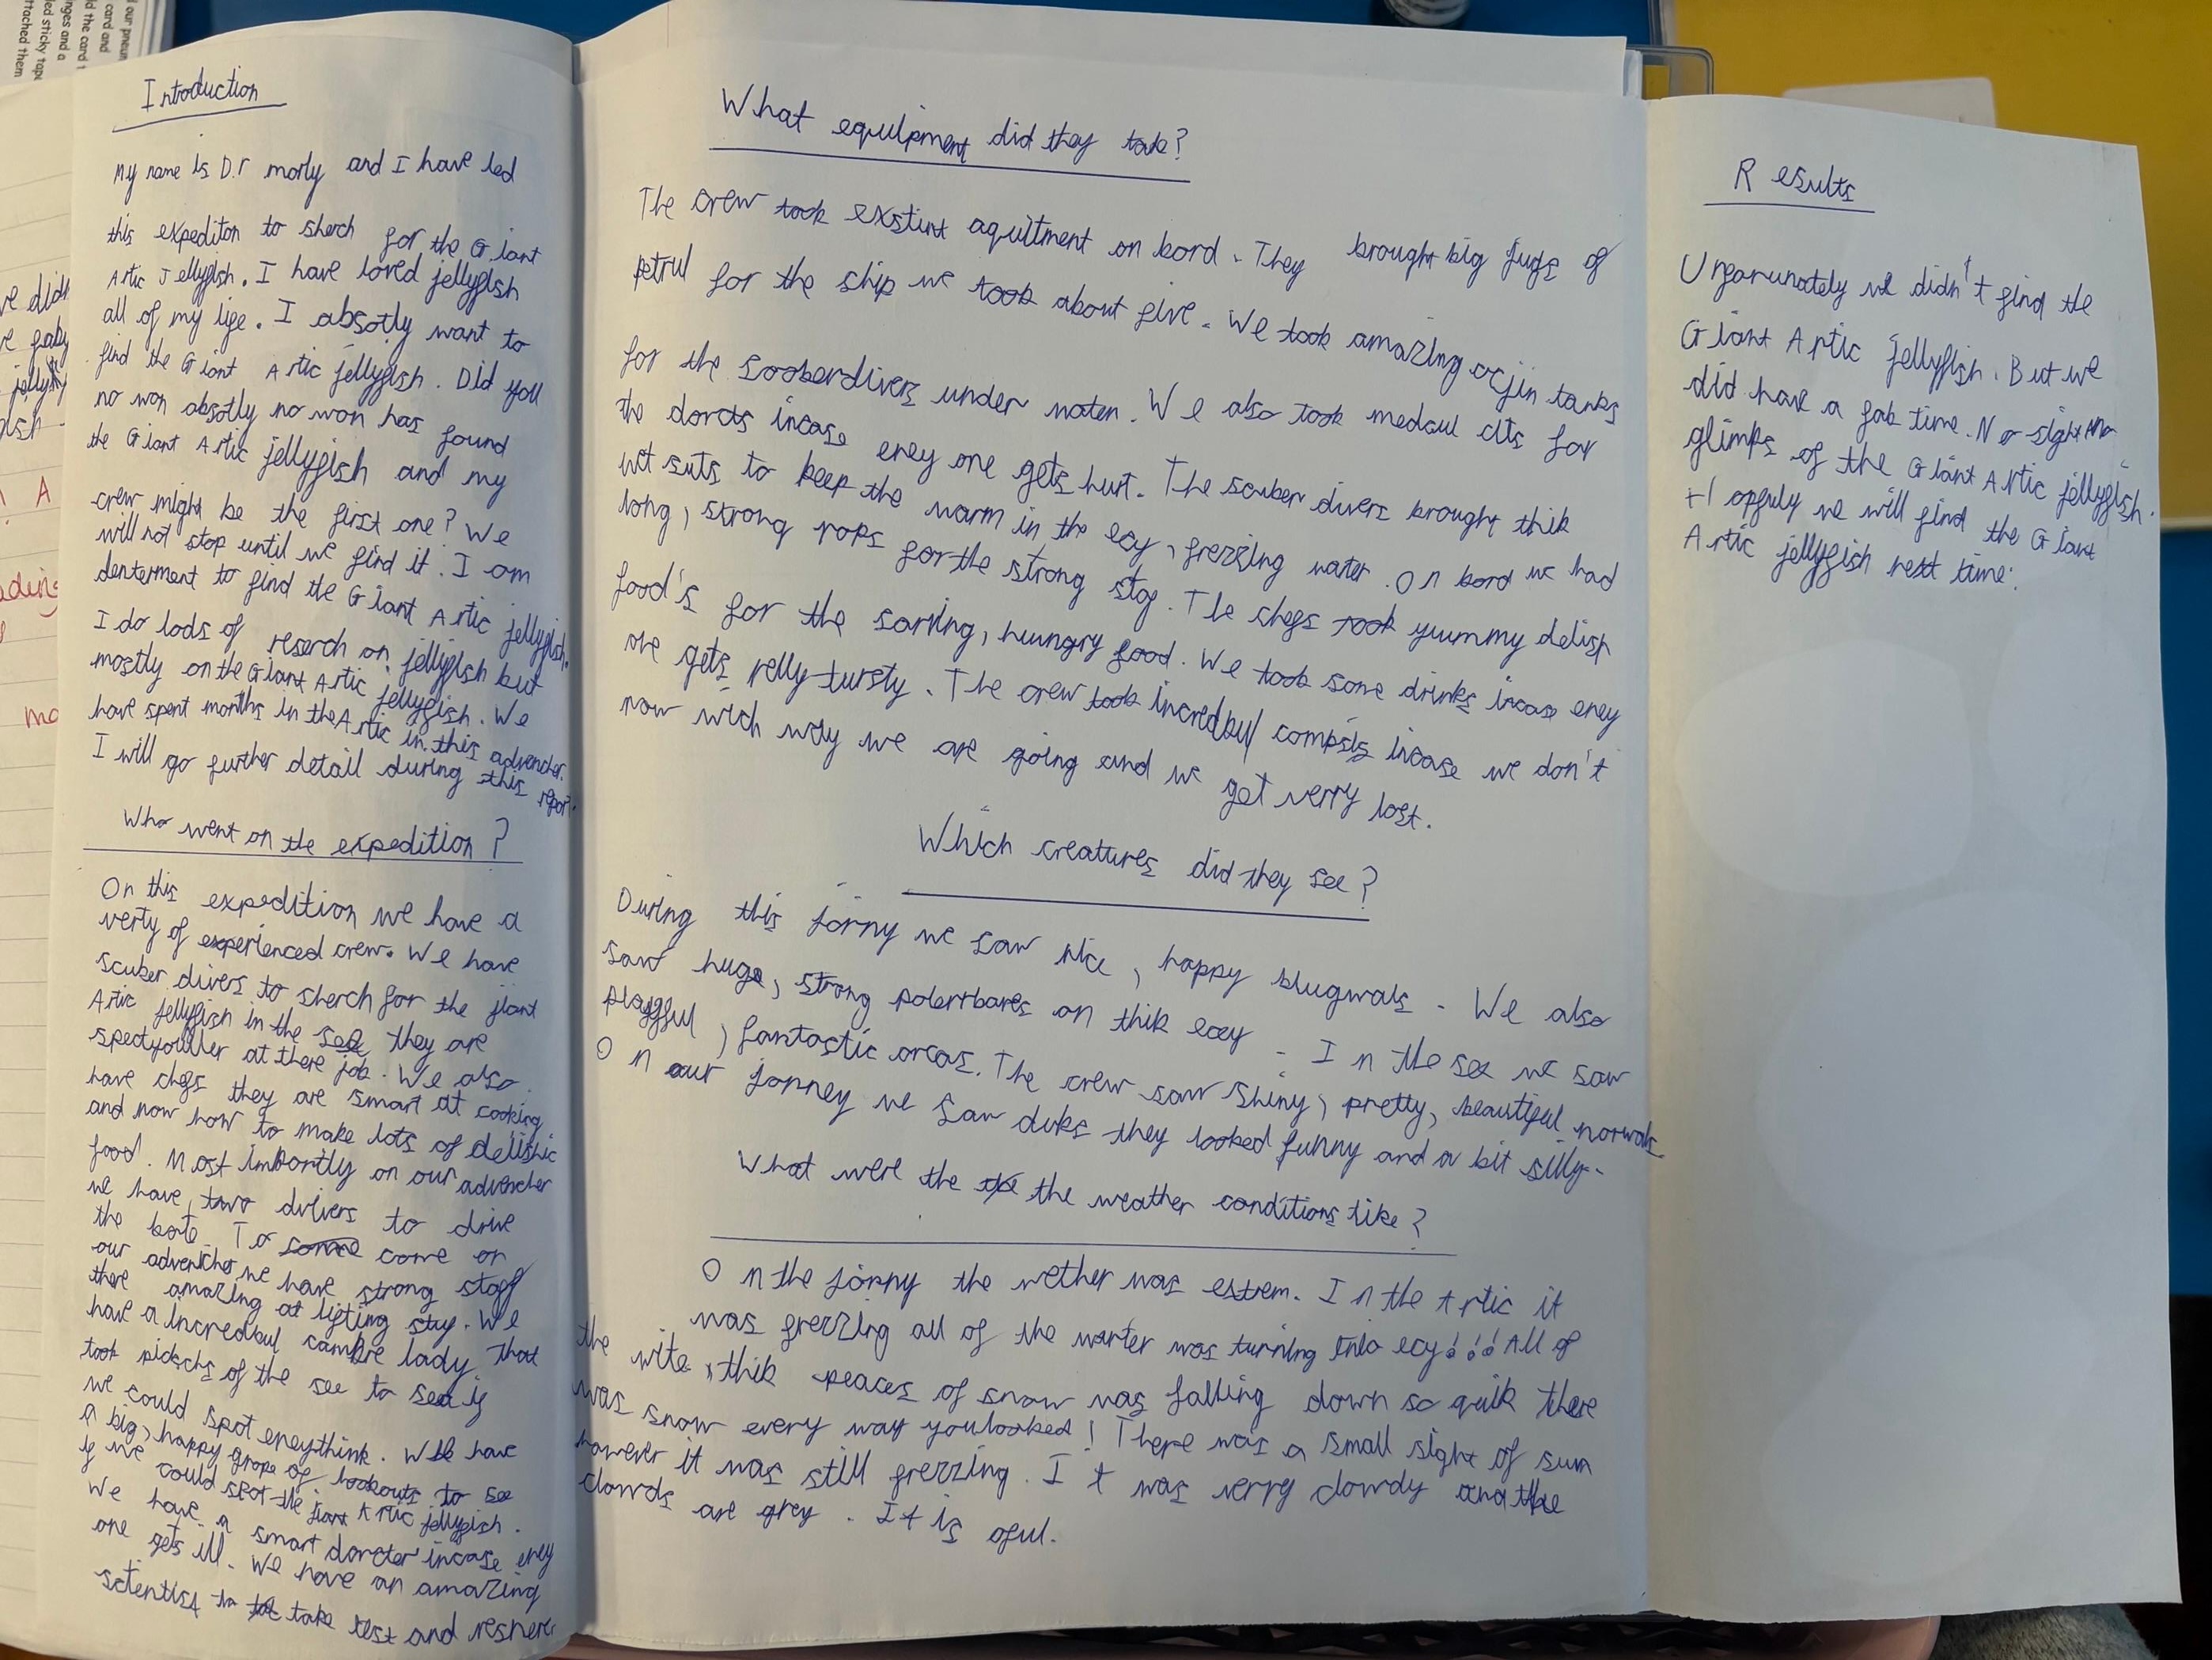 Introduction
My name is D.r morly and I have led
this expediton to sherch for the Giant
Artic Jellyfish. I have loved jellyfish
all of my life. I absotly want to
find the Giant Artic jellyfish. Did you
no won absotly no won has found
the Giant Artic jellyfish and my
crew might be the first one? We
will not stop until we find it. I am
denterment to find the Giant Artic jellyfish.
I do lods of reserch on jellyfish but
mostly on the Giant Artic jellyfish. We
have spent months in the Artic in this advencher.
I will go further detail during this report.
Who went on the expedition?
On this expedition we have a
verty of experienced crew. We have
scuber divers to sherch for the jiant
Artic jellyfish in the sea they are
spectyouller at there job. We also
have chefs they are smart at cooking
and now how to make lots of delishic
food. Most imbortly on our advencher
we have two drivers to drive
the bote. To come on
our advencher we have strong staff
there amazing at lifting stuf. We
have a incredbul cambre lady that
took pickchs of the see to see if
we could spot eneythink. We have
a big, happy grope of lookouts to see
if we could spot the jiant Artic jellyfish.
We have a smart doncter incase eney
one gets ill. We have an amazing
scientist to take test and resherer
What equipment did they take?
The crew took existint aquitment on bord. They brought big jugs of
petrul for the ship we took about five. We took amazing ocjin tanks
for the scoberdivers under water. We also took medcul cits for
the dorcts incase eney one gets hurt. The scuber divers brought thik
wet suts to keep the warm in the ecy, frezzing water. On bord we had
long, strong rops for the strong stof. The chefs took yuummy delish
food's for the sarving, huungry food. We took some drinks incase eney
one gets relly tursty. The crew took incredbul compsis incase we don't
now wich way we are going and we get verry lost.
Which creatures did they see?
During this jorny we saw nice, happy blugwals. We also
saw huge, strong polerrbares on thik ecey. In the see we saw
playgful, fantastic orcas. The crew saw shiny, pretty, beautiful norwals
On our jorney we saw duks they looked funny and a bit silly.
What were the the weather conditions like?
On the jorny the wether was estrem. In the Artic it
was frezzing all of the warter was turning into ecy!!! All of
the wite, thik peaces of snow was falling down so quik there
was snow every way you looked! There was a small sight of sun
however it was still frezzing. It was verry clowdy and the
clowds are grey. It is oful.
Results
Unfarunately we didn't find the
Giant Artic jellyfish. But we
did have a fab time. No sight no
glimps of the Giant Artic jellyfish.
Hopfuly we will find the Giant
Artic jellyfish next time.